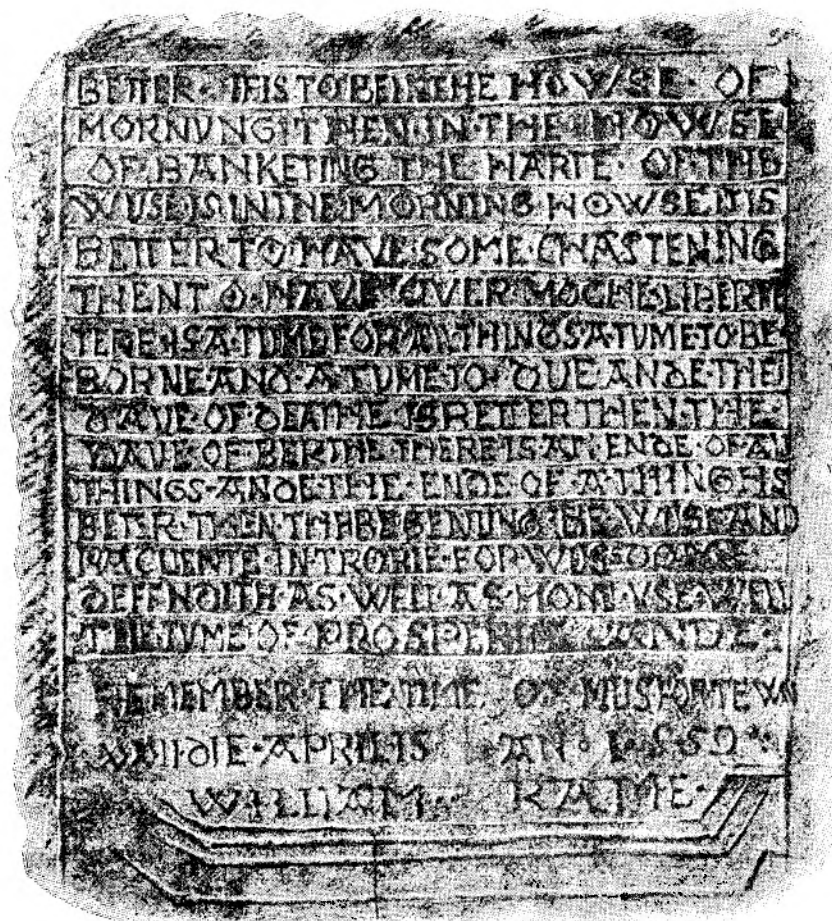 BETTER · IT IS TO BE IN THE HOWSE · OF
MORNYNG · THEN IN · THE HOWSE
OF BANKETING THE HARTE · OF THE
WYSE IS IN THE MORNING HOWSE IT IS
BETTER TO HAVE · SOME · CHASTENING
THEN TO HAVE OVER MOCHE LIBERTE
TERE · IS A · TYME FOR AL · THINGS A · TYME TO · BE
BORNE AND · A TYME TO · DYE · ANDE · THE
DAYE OF DEATHE IS BETTER THEN · THE ·
DAYE · OF BERTHE THERE IS AN · ENDE · OF AL
THINGS · ANDE THE · ENDE · OF · A · THING IS
BETER · THEN · THE BEGENING BE WYSE AND
PACIENTE · IN TROBLE · FOR WYSDOM
DEFENDITH · AS · WELL AS · MONI · VSE · WELL
THE TYME OF PROSPERITY ANDE
REMEMBER · THE TIME OF MISFORTEWN
DIE · APRILIS AN · 1559
WILLIAM RAME